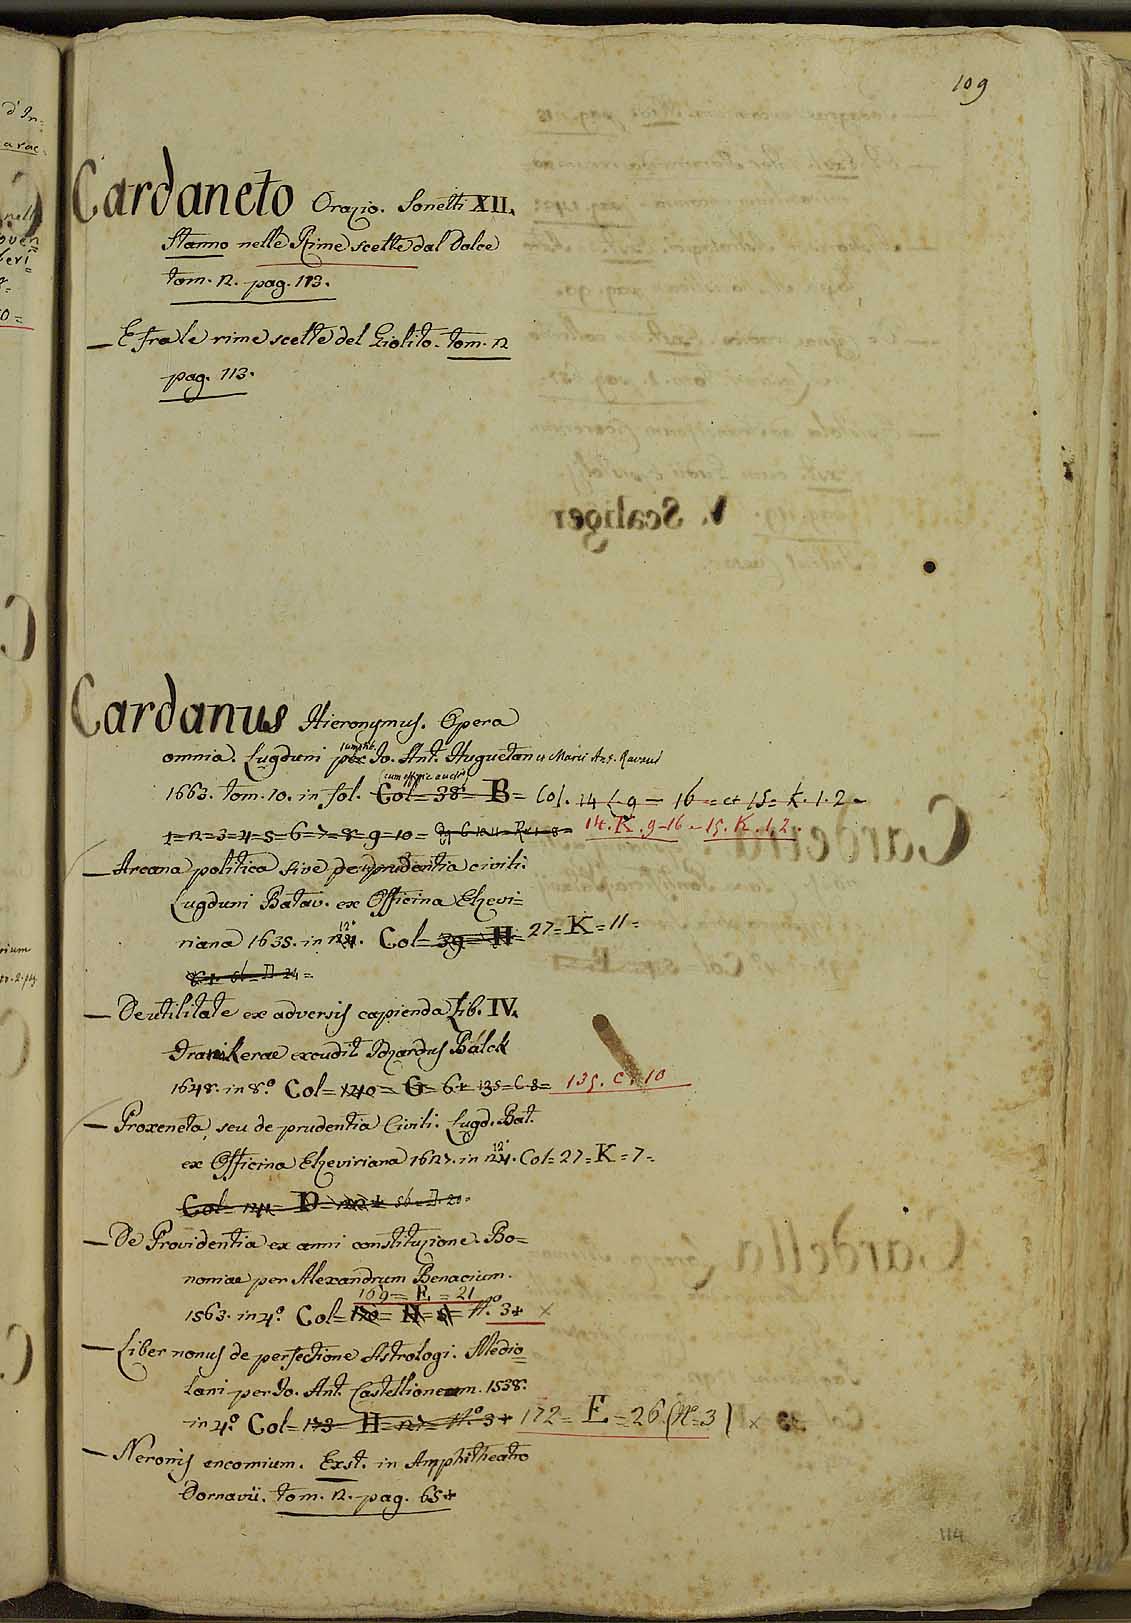 109
Cardaneto Orazio. Sonetti XII.
Stanno nelle Rime scelte dal Dolce
tom. 2. pag. 113.
— E fra le rime scelte del Giolito. tom. 2
pag. 113.
V. Scaliger
Cardanus Hieronymus. Opera
omnia. Lugduni sumptib. Io. Ant. Huguetan
1663. tom. 10. in fol. (cum effigie auctoris) Col = 38 = B = Col. 14 = 16 = et 15 = K. 1. 2 =
1=2=3=4=5=6=7=8=9=10= 14. K. 9-16 - 15. K. 1. 2.
— Arcana politica sive de prudentia civili.
Lugduni Batav. ex Officina Elzevi=
riana 1635. in 12° Col = 39 = H = 27 = K = 11 =
— De utilitate ex adversis capienda Lib. IV.
Franikerae excudit Idzardus Balck
1648. in 8.° Col = 140 = G = 6+ 135 = C 8 = 135. C. 10
— Proxeneta, seu de prudentia Civili. Lugd. Bat.
ex Officina Elzeviriana 1627. in 12° Col = 27 = K = 7 =
Col = D =
— De Providentia ex anni constitutione. Bo=
noniae per Alexandrum Benacium.
169 = E = 21
1563. in 4.° Col = 170 = H = 8 = N.° 3+ ×
— Liber nonus de perfectione Astrologi. Medio=
lani per Io. Ant. Castellioneum. 1538.
in 4.° Col = 173 = H = 27 = N.° 3+ 172 = E = 26 (N.° = 3) ×
— Neronis encomium. Exst. in Amphitheatro
Dornavii. tom. 2. pag. 65+
114